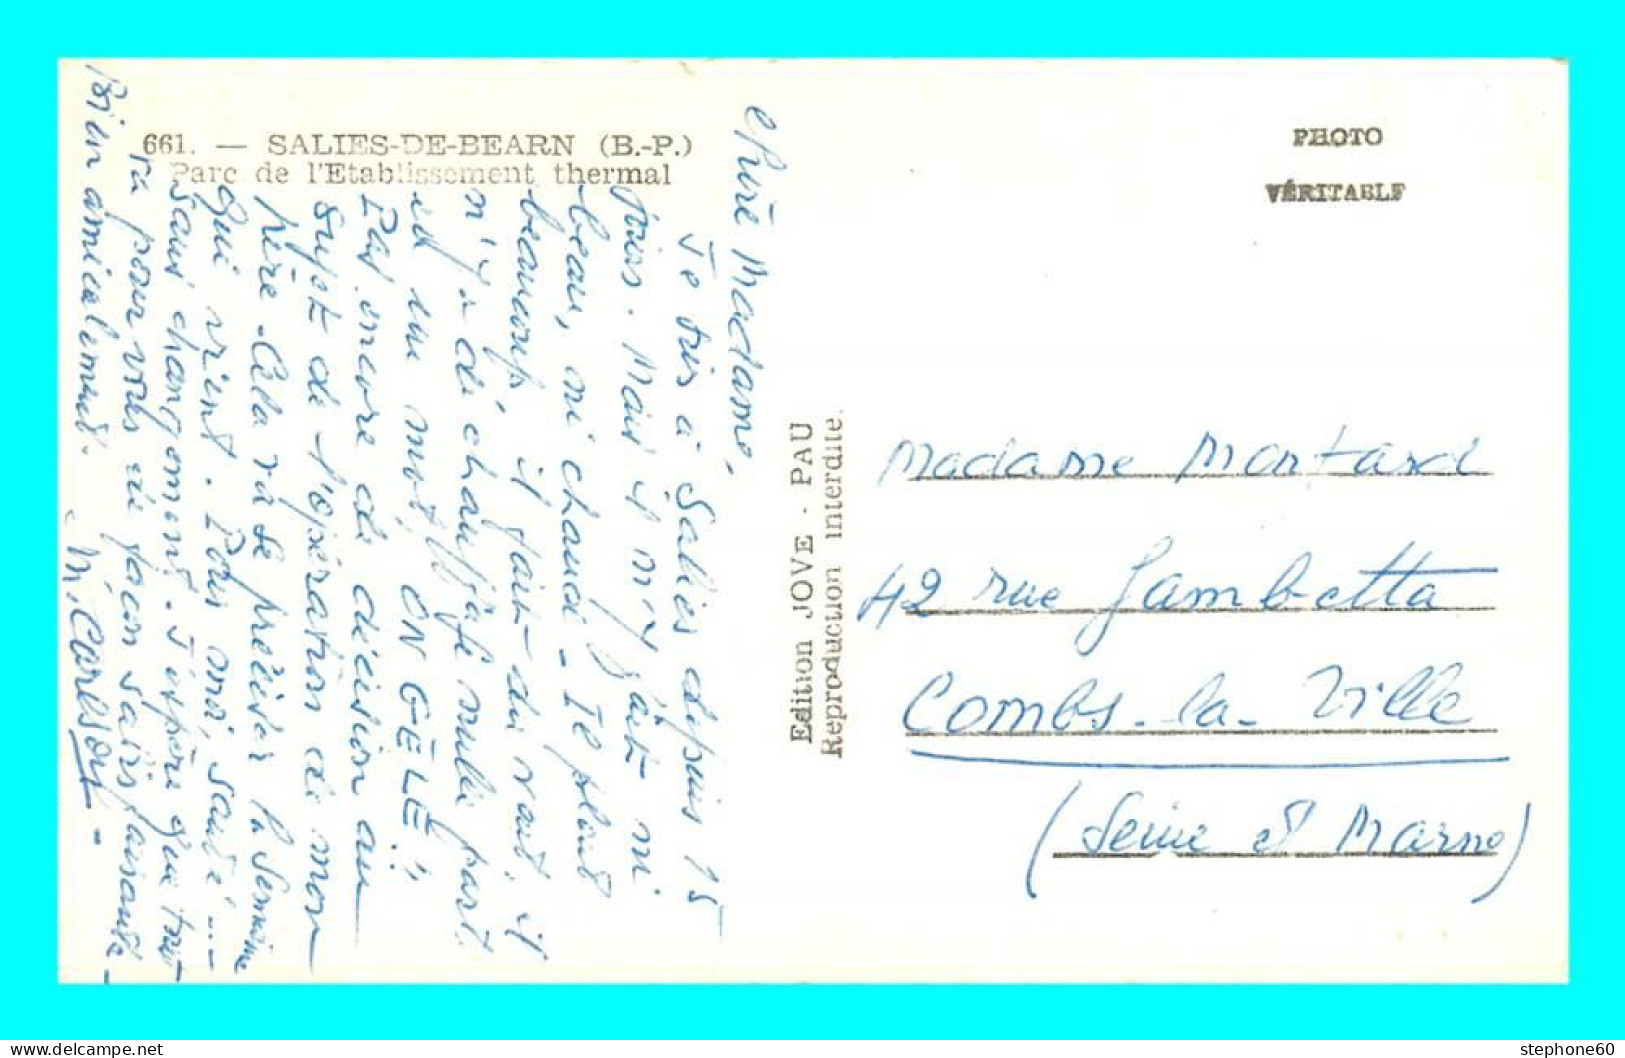 661. — SALIES-DE-BEARN (B.-P.)
Parc de l'Etablissement thermal
Madame,
Je suis à Salies depuis 15
jours. Mais il n'y fait ni
beau, ni chaud. Il pleut
beaucoup, il fait du vent, il
n'y a de chauffage nulle part
en un mot, ON GÈLE!!
Pas encore de décision au
sujet de l'opération de mon
père. Cela va se préciser la semaine
qui vient. Pour moi, santé....
sans changement. J'espère que tout
va pour vous de façon satisfaisante.
Bien amicalement.
Edition JOVE - PAU
Reproduction interdite.
PHOTO
VÉRITABLE
Madame Montard
42 rue Gambetta
Combs-la-Ville
(Seine et Marne)
stephone60